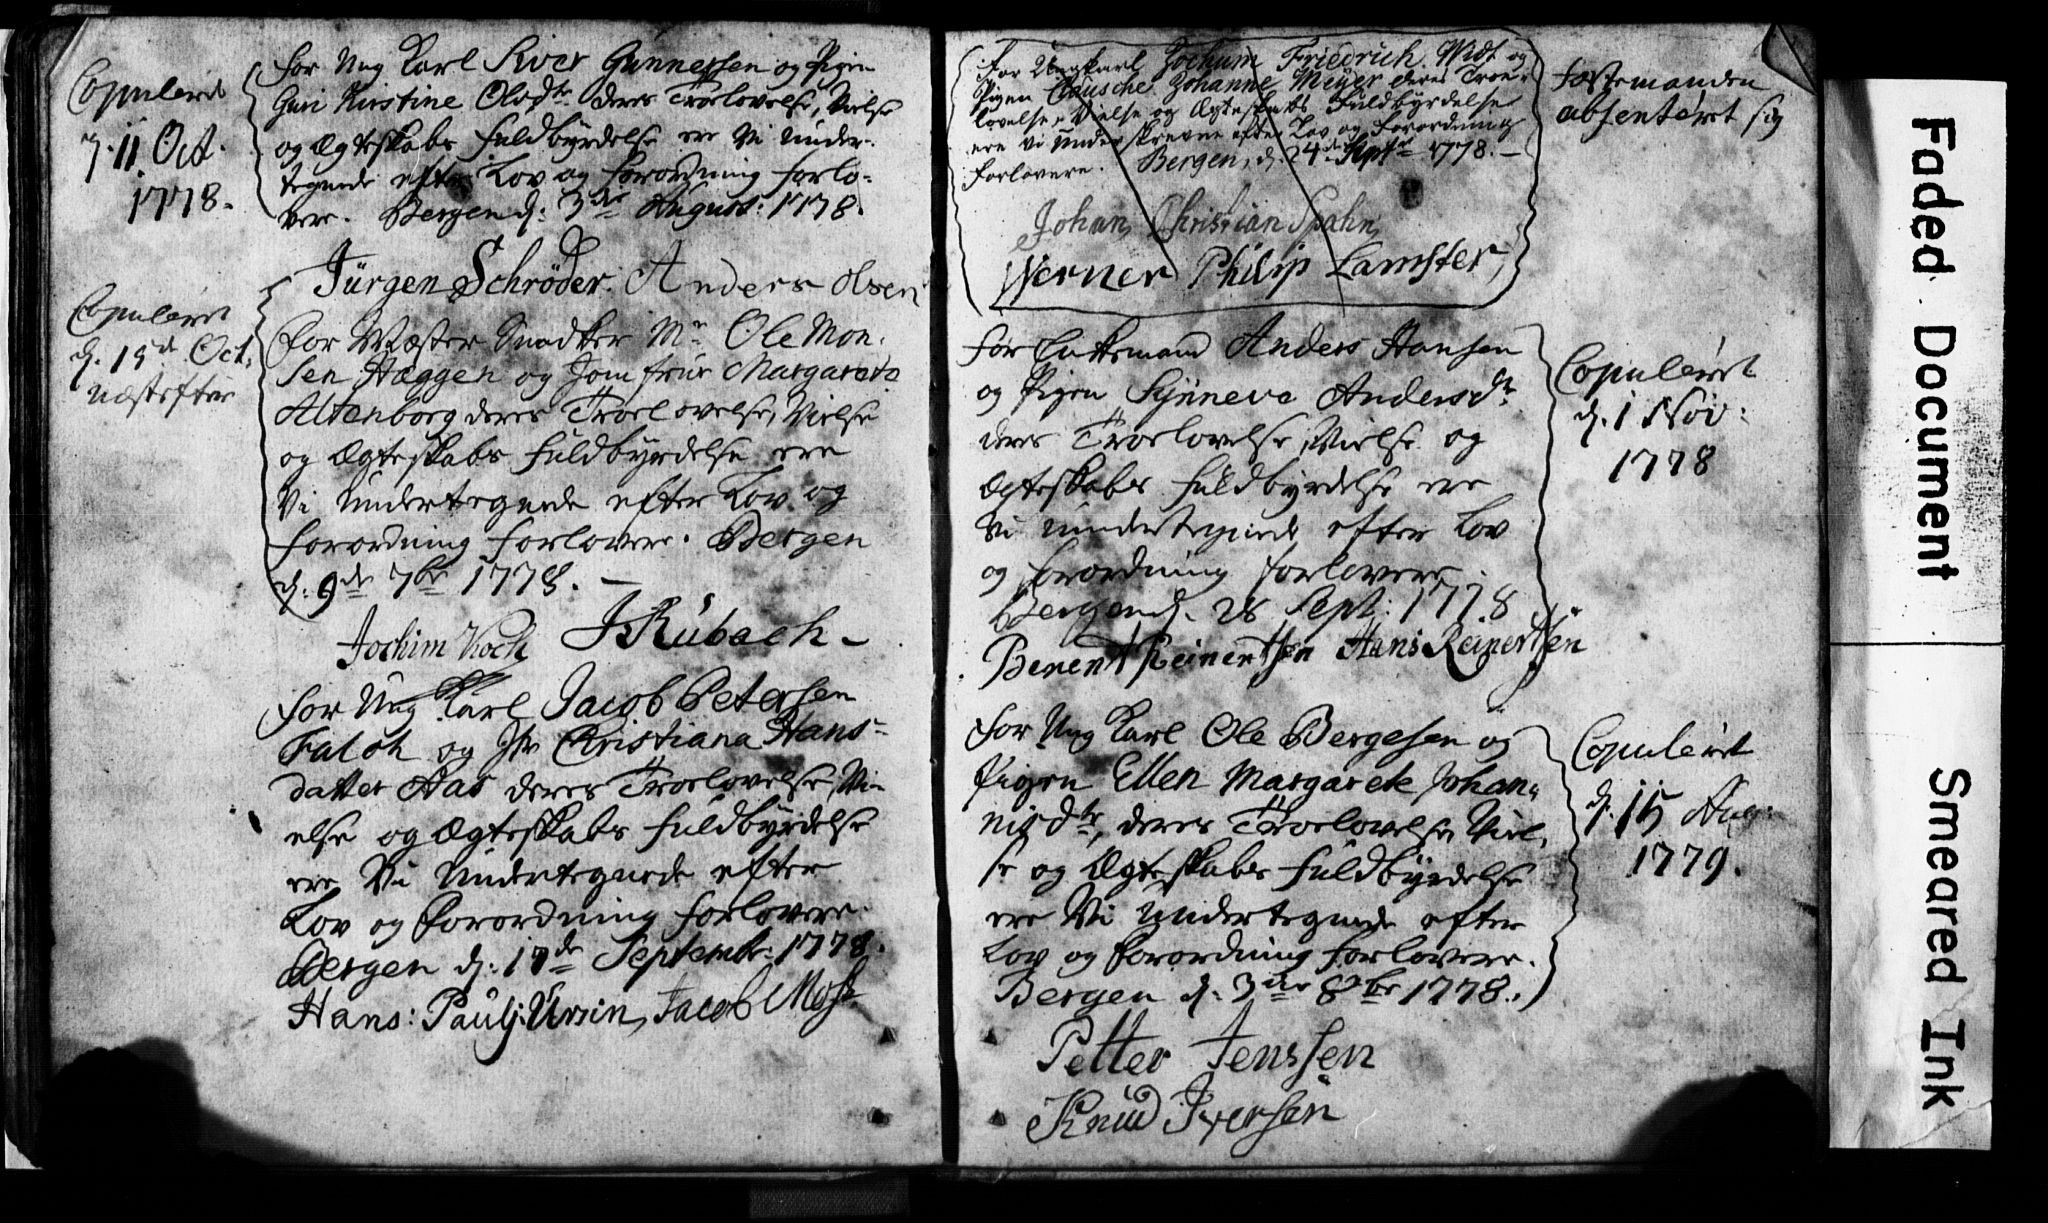 Copuleret
d. 11 Oct.
1778.
for Ung Karl Siver Gunnersen og Pigen
Guri Kirstine Olsdtr deres Troelovelse, Vielse
og Ægteskabs Fuldbyrdelse ere Vi Under-
tegnede efter Lov og Forordning forlo-
vere. Bergen d: 3die August: 1778.
Jürgen Schrøder. Anders Olsen
Copuleret
d. 15de Oct.
næstefter
for Mæster Snedker Mr Ole Mon-
sen Hæggen og Jomfrue Margareta
Altenborg deres Troelovelse, Vielse
og Ægteskabs Fuldbyrdelse ere
Vi Undertegnede efter Lov og
Forordning Forlovere. Bergen
d: 9de 7br 1778. —
Jochim Koch JRübach -
for Ung Karl Jacob Petersen
Falch og Jfr Christiana Hans-
datter Aas deres Troelovelse, Vi-
else og Ægteskabs Fuldbyrdelse
ere Vi Undertegnede efter
Lov og Forordning Forlovere.
Bergen d: 17de Septembr: 1778.
Hans: Paulj: Ursin, Jacob
For Ungkarl Jochum Friedrich Widt og
Pigen Clausche Johanne Meyer deres Troe-
lovelse, Vielse og Ægteskabs Fuldbyrdelse
ere vi Underskrevne efter Lov og Forordning
Forlovere. Bergen, d. 24de Septr 1778. —
Johan Christian Spahn,
Werner Philip Lamster,
Fæstemanden
absenteret sig
For Enkemand Anders Hansen
og Pigen Synneva Andersdtr
deres Troelovelse, Vielse og
Ægteskabs Fuldbyrdelse ere
Vi undertegnede efter Lov
og Forordning Forlovere.
Bergen d. 28 Sept: 1778
Berent Reinertsen Hans Reinertsen
Copuleret
d. 1 Nov:
1778
For Ung Karl Ole Bergesen og
Pigen Ellen Margarete Johan-
nisdtr, deres Troelovelse, Viel-
se og Ægteskabs Fuldbyrdelse
ere Vi Undertegnede efter
Lov og Forordning Forlovere.
Bergen d. 3die 8br 1778.
Petter Jenssen
Knud Iversen
Copuleret
d. 15 Aug:
1779.
Faded Document
Smeared Ink